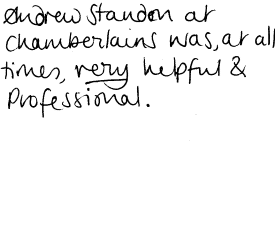 Andrew Standen at
Chamberlains was, at all
times, very helpful &
Professional.